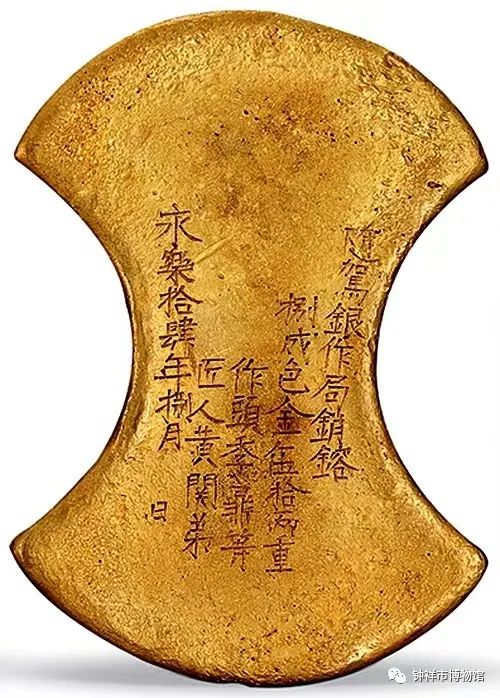 隨駕銀作局銷鎔
捌成色金伍拾兩重
作頭季鼎等
匠人黃關弟
永樂拾肆年捌月 日
钟祥市博物馆